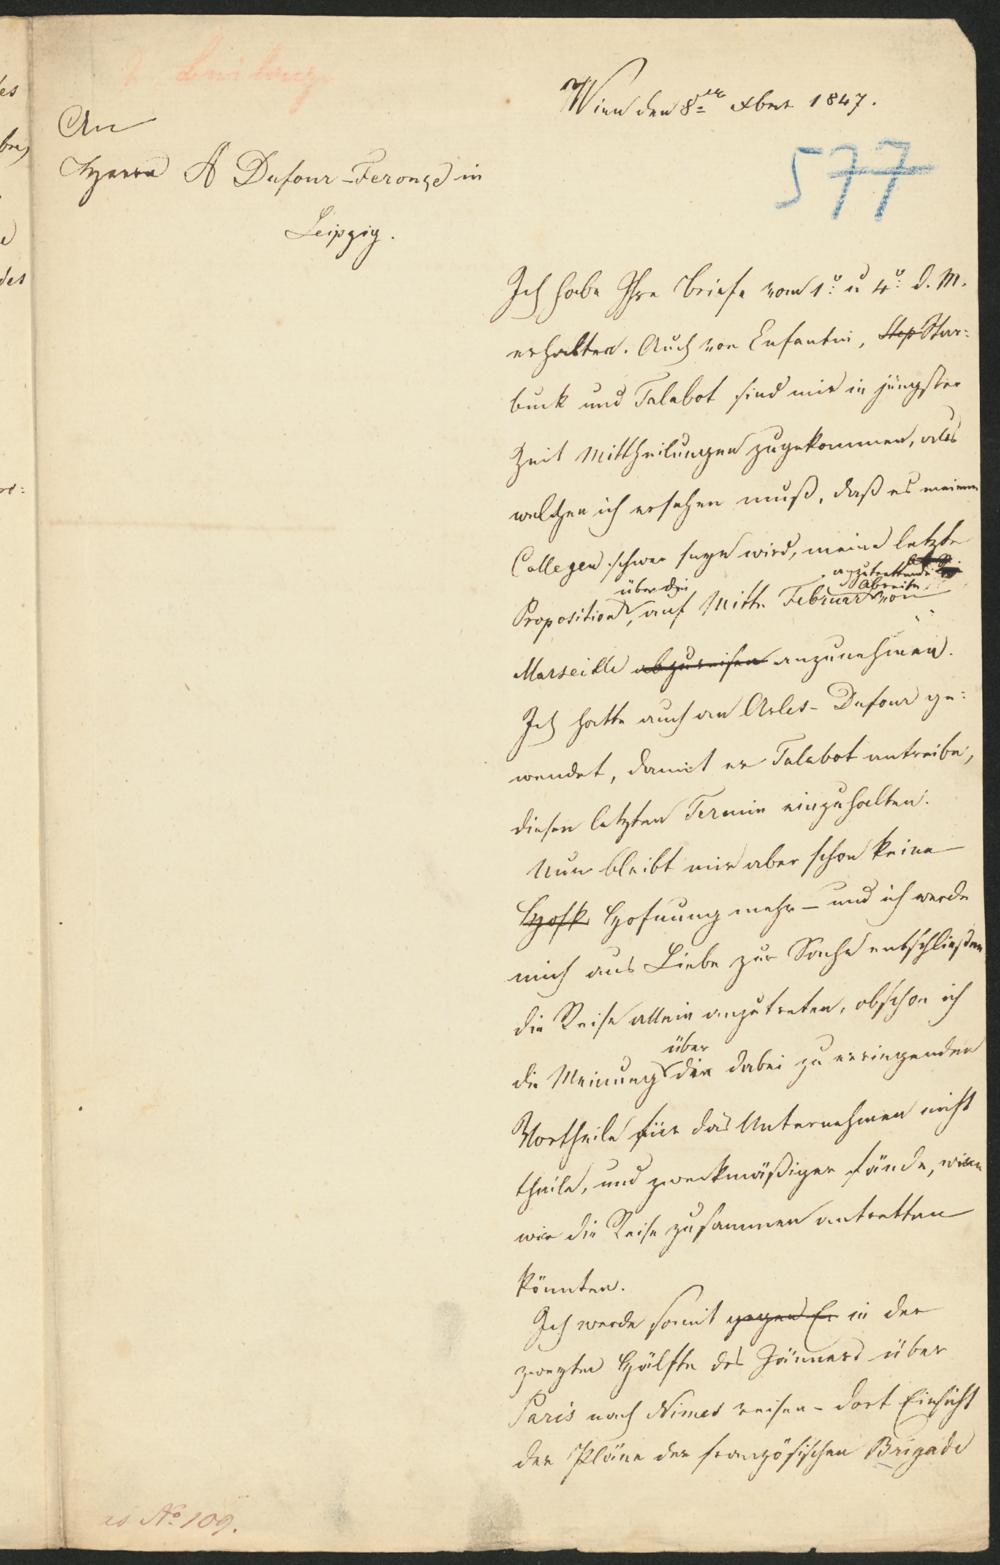 2 Beilage
Wien den 8ten Xber 1847.
An
Herrn A Dufour-Feronçe in
Leipzig.
577
Ich habe Ihre Briefe vom 1. u 4. d. M.
erhalten. Auch von Enfantin, Step Star-
buck und Talabot sind mir in jüngster
Zeit Mittheilungen zugekommen, aus
welchen ich ersehen muß, daß es meinen
Collegen schwer seyn wird, meine letzte
Proposition, über die auf Mitte Februar anzutrettende Abreise von
Marseille abzureisen anzunehmen.
Ich hatte auch an Arles-Dufour ge-
wendet, damit er Talabot antreibe,
diesen letzten Termin einzuhalten.
Nun bleibt mir aber schon keine
Hoff Hofnung mehr – und ich werde
mich aus Liebe zur Sache entschließen
die Reise allein anzutreten, obschon ich
die Meinung über die dabei zu erringenden
Vortheile für das Unternehmen nicht
theile, und zweckmäßiger fände, wenn
wir die Reise zusammen antretten
könnten.
Ich werde somit gegen E in der
zweyten Hälfte des Jänners über
Paris nach Nimes reisen – dort Einsicht
der Pläne der französischen Brigade
No 109.